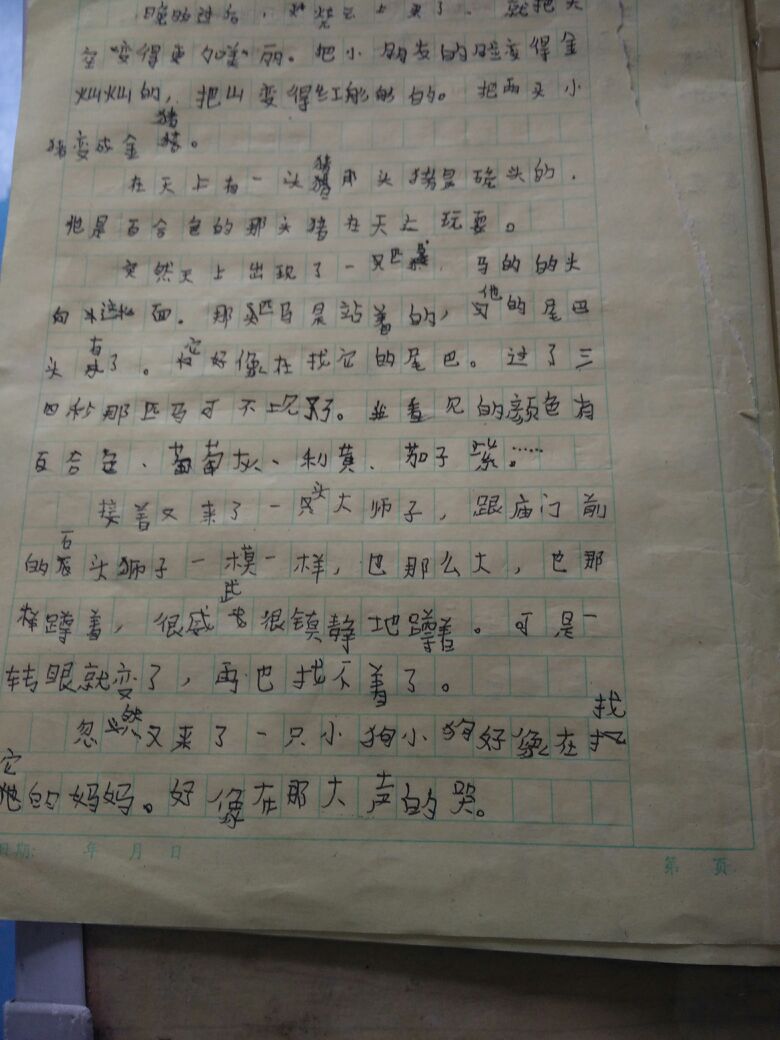 晚饭过后，火烧云上来了。就把天
空变得更加美丽。把小朋友的脸变得金
灿灿的，把山变得红彤彤的。把两头小
猪变成金猪。
在天上有一头猪那头猪是猪头的，
他是百合色的那头猪在天上玩耍。
突然天上出现了一匹马，马的的头
向西面。那匹马是站着的，他的尾巴
头有了。它好像在找它的尾巴。过了三
四秒那匹马可不见了。看见的颜色有
百合色、葡萄灰、利黄、茄子紫。……
接着又来了一头大师子，跟庙门前
的石头狮子一模一样，也那么大，也那
样蹲着，很威武很镇静地蹲着。可是一
转眼就变了，再也找不着了。
忽然又来了一只小狗小狗好像在找
它的妈妈。好像在那大声的哭。
日期: 年 月 日
第 页